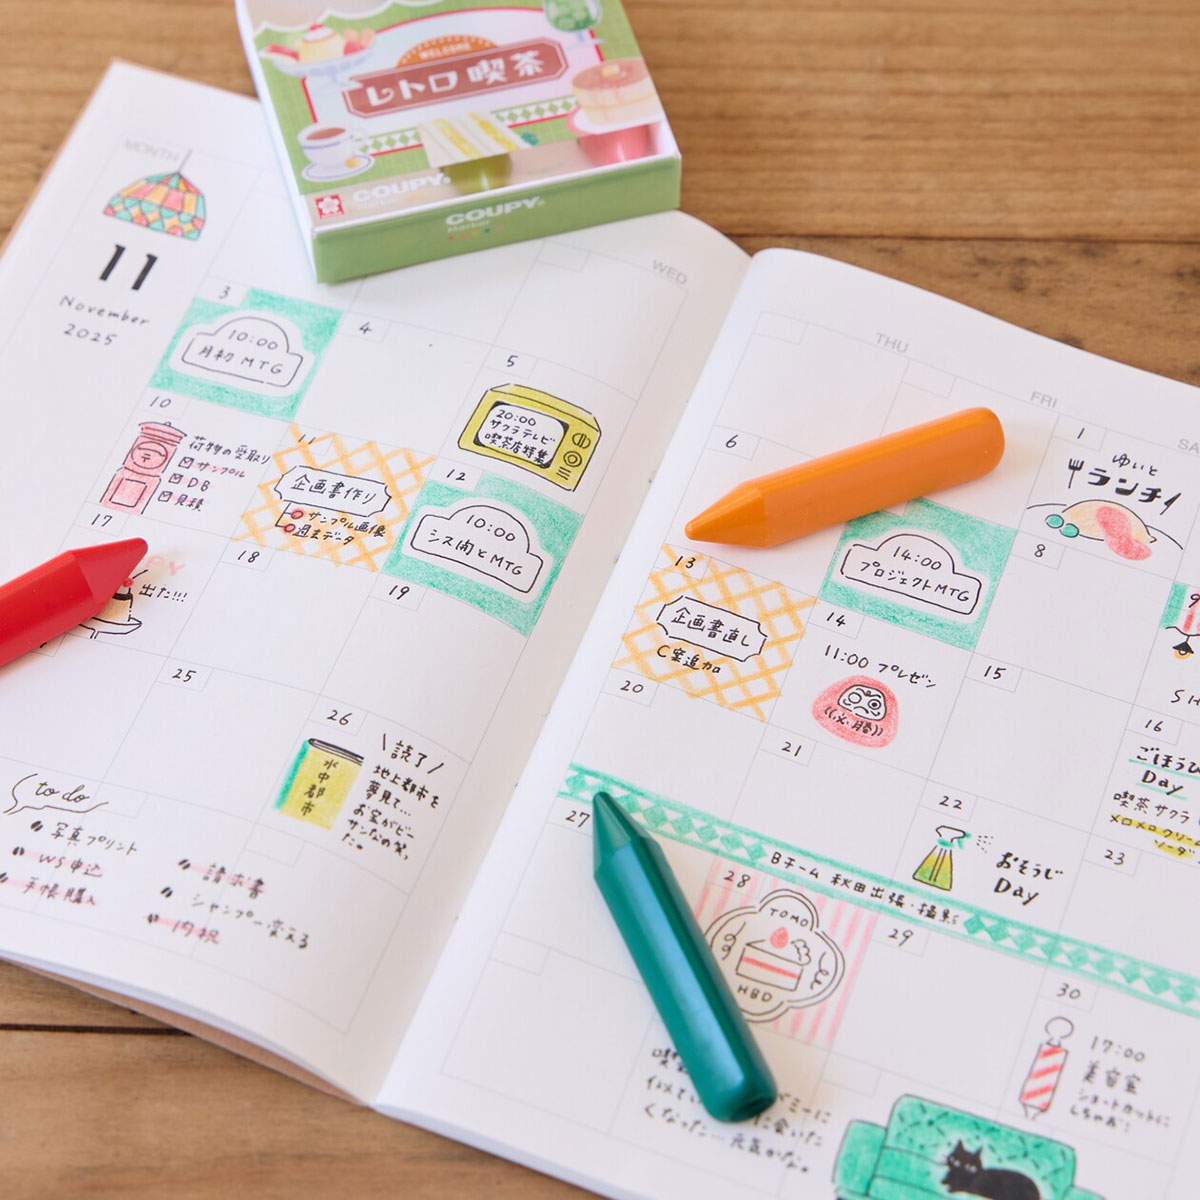 WELCOME
レトロ喫茶
COUPY
COUPY
Marker
MONTH
11
November
2025
WED
THU
FRI
SA
3
10:00
月初MTG
4
5
20:00
サクラテレビ
喫茶店特集
6
1
ゆいと
ランチ
8
9
10
荷物の受取り
サンプル
DB
見積
11
企画書作り
サンプル画像
過去データ
12
10:00
シス開とMTG
13
企画書直し
C案追加
14:00
プロジェクトMTG
14
11:00 プレゼン
必勝
15
SH
16
ごほうび
Day
喫茶サクラ
メロメロクリーム
ソーダ
17
出た!!!
18
19
20
21
22
おそうじ
Day
23
25
26
水中都市
読了
地上都市を
夢見て…
お宝がビー
サンなの笑
27
Bチーム 秋田出張・撮影
28
TOMO
HBD
29
30
17:00
美容室
ショートカットに
しちゃお!
to do
写真プリント
WS申込
手帳購入
請求書
シャンプー変える
内祝
喫
似てい
に会いた
くなった… 元気かな。